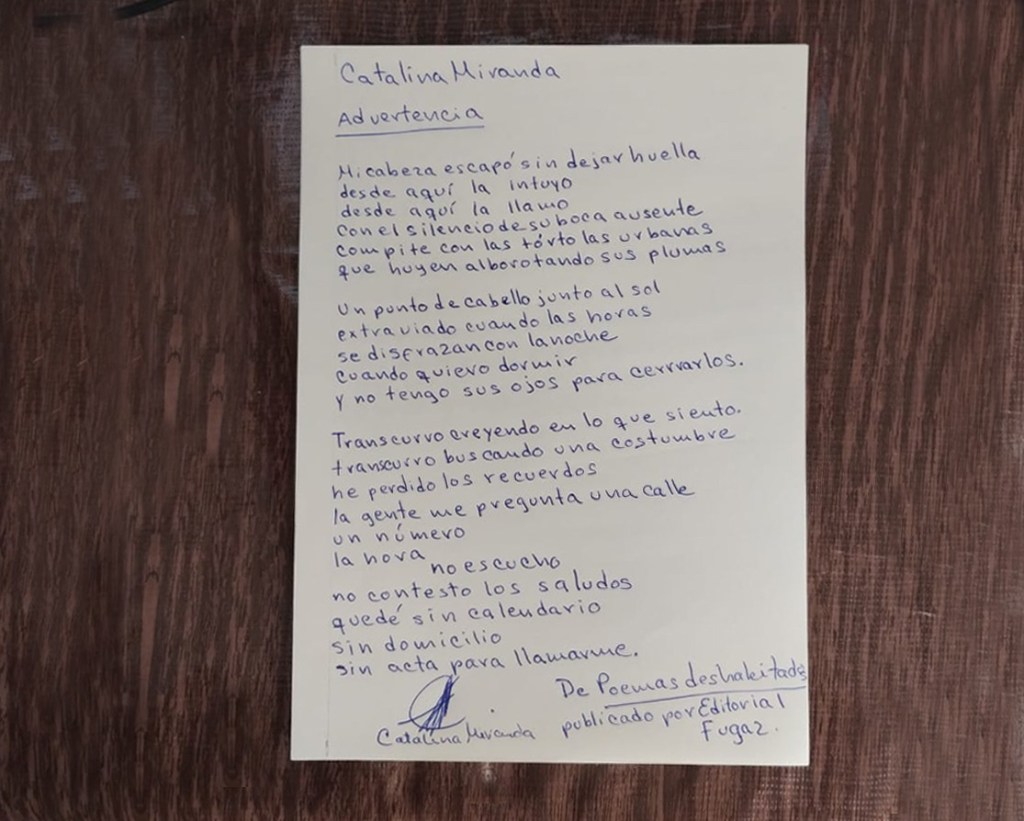 Catalina Miranda
Advertencia
Mi cabeza escapó sin dejar huella
desde aquí la intuyo
desde aquí la llamo
con el silencio de su boca ausente
compite con las tórtolas urbanas
que huyen alborotando sus plumas
Un punto de cabello junto al sol
extraviado cuando las horas
se disfrazan con la noche
cuando quiero dormir
y no tengo sus ojos para cerrrarlos.
Transcurro creyendo en lo que siento.
transcurro buscando una costumbre
he perdido los recuerdos
la gente me pregunta una calle
un número
la hora
no escucho
no contesto los saludos
quedé sin calendario
sin domicilio
sin acta para llamarme.
De Poemas deshabitados
publicado por Editorial
Fugaz.
Catalina Miranda